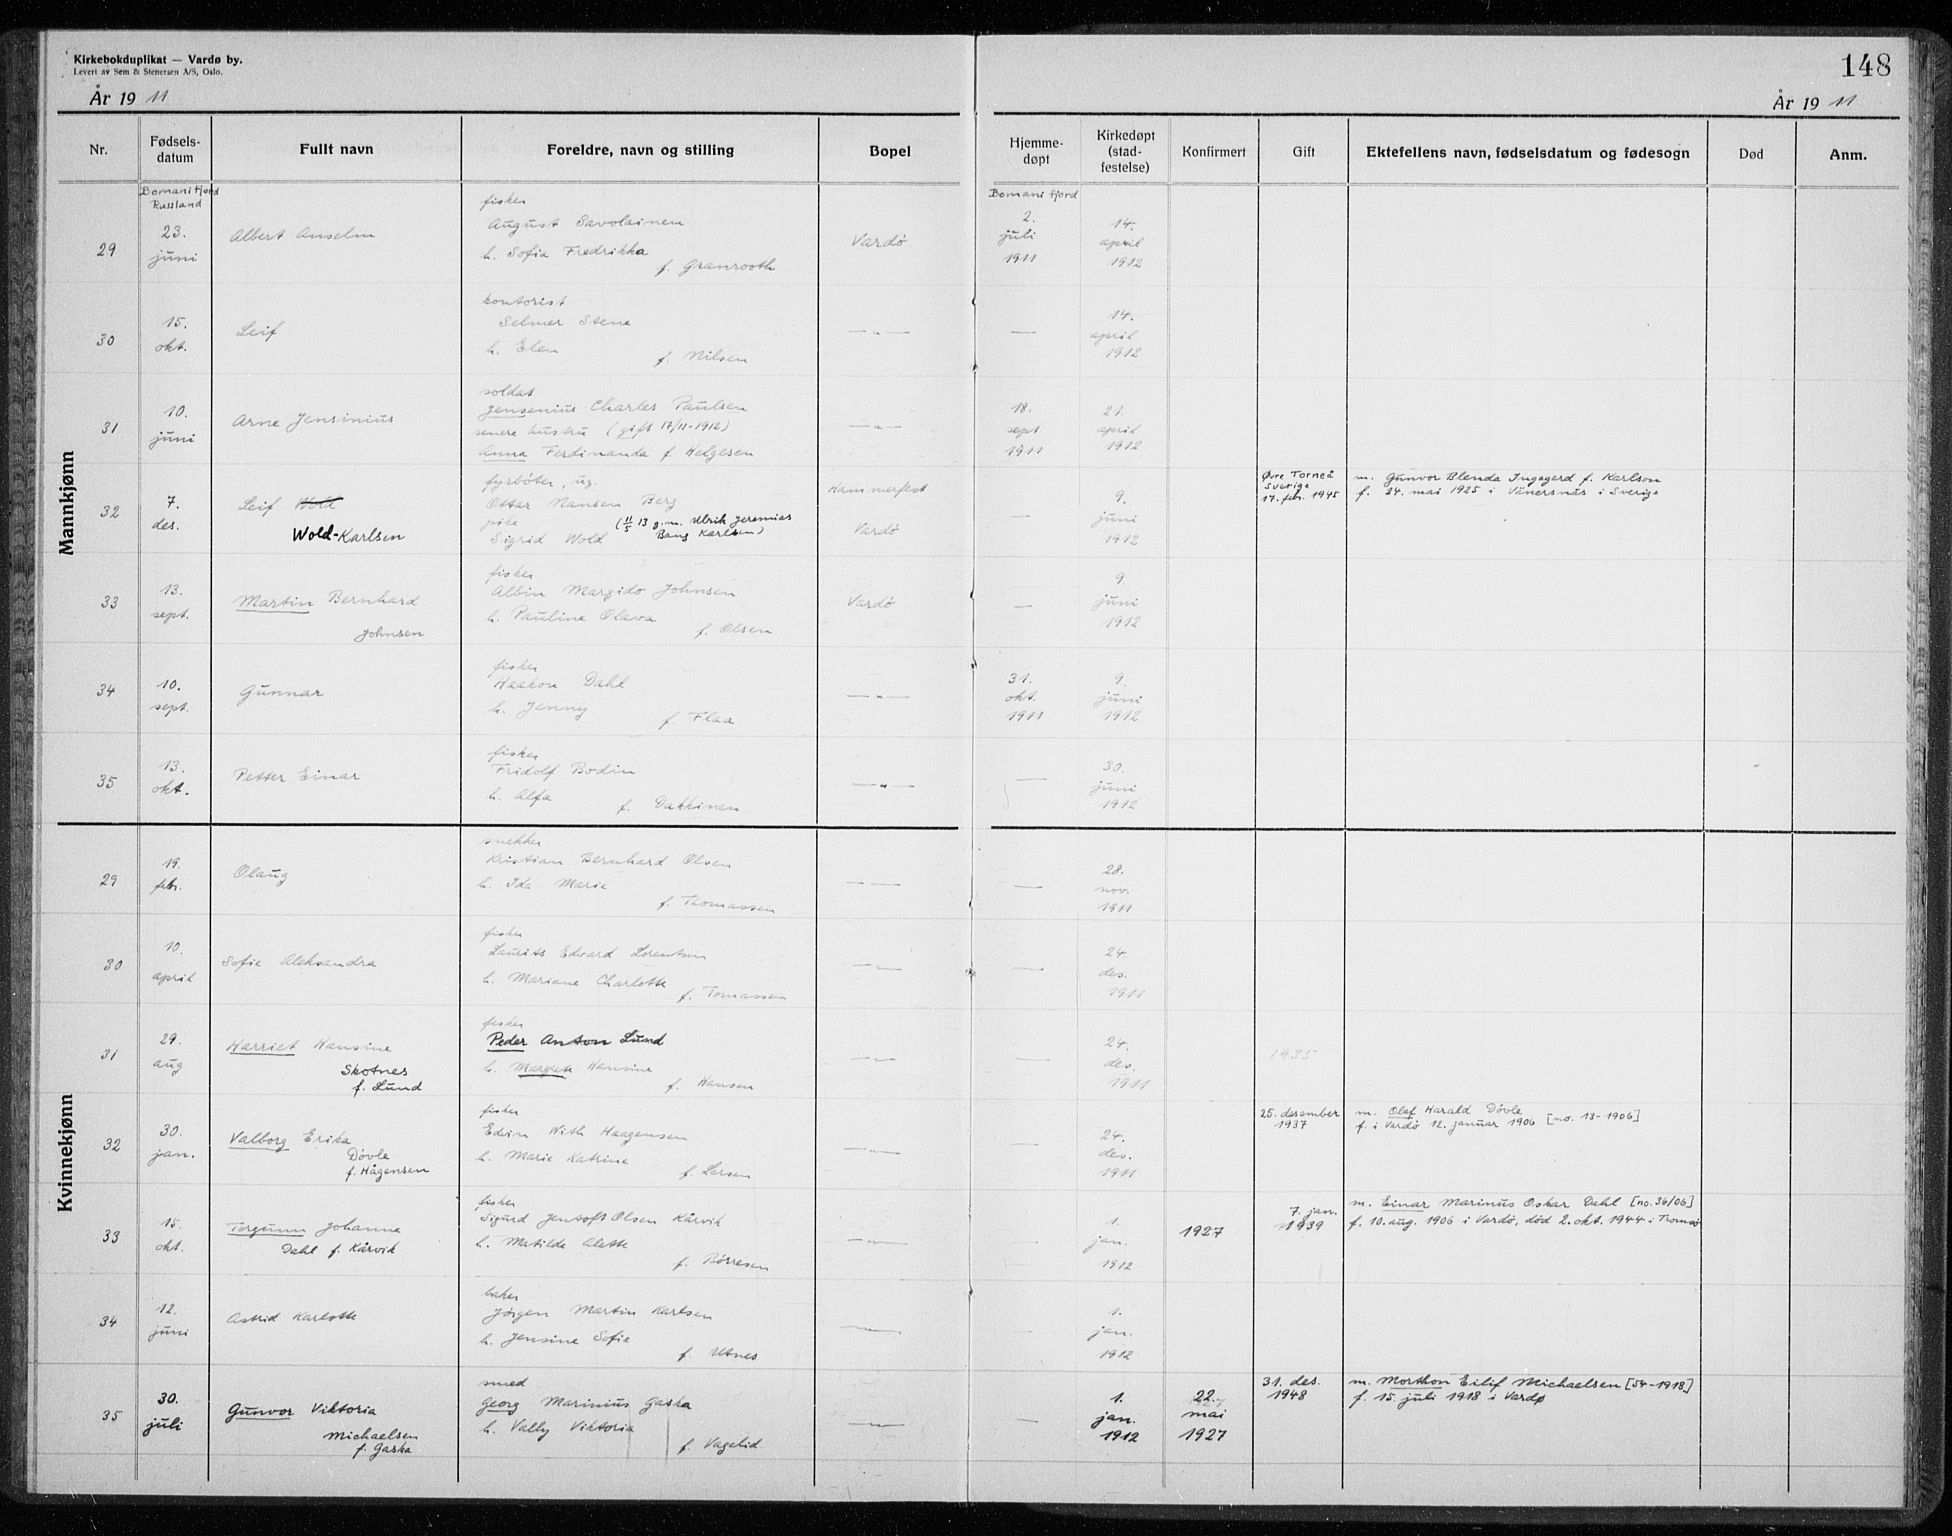 Kirkebokduplikat — Vardø by.
Levert av Sem & Stenersen A/S, Oslo.
148
År 19 11
År 19 11
Nr. Fødselsdatum Fullt navn Foreldre, navn og stilling Bopel Hjemmedøpt Kirkedøpt (stadfestelse) Konfirmert Gift Ektefellens navn, fødselsdatum og fødesogn Død Anm.
Mannkjønn
Bomanifjord
Russland
29
23.
juni
Albert Anselm
fisker
August Savolainen
h. Sofia Fredrikka
f. Granrooth
Vardö
Bomanifjord
2.
juli
1911
14.
april
1912
30
15.
okt.
Leif
kontorist
Selmer Stene
h. Elen
f. Nilsen
—„—
—
14.
april
1912
31
10.
juni
Arne Jensinius
soldat
Jensenius Charles Paulsen
senere hustru (gift 17/11-1912)
Anna Ferdinanda f. Helgesen
—„—
18.
sept.
1911
21.
april
1912
32
7.
des.
Leif Wold
Wold-Karlsen
fyrbøter, ug.
Ottar Nansen Berg
pike (11/5 13 g.m. Ulrik Jeremias
Sigrid Wold Bang Karlsen)
Hammerfest
Vardö
—
9.
juni
1912
Øvre Torneå
Sverige
17. febr. 1945
m. Gunvor Blenda Ingegerd f. Karlson
f. 24. mai 1925 i Vänersnäs i Sverige
33
13.
sept.
Martin Bernhard
Johnsen
fisker
Albin Margido Johnsen
h. Pauline Olava
f. Olsen
Vardö
—
9.
juni
1912
34
10.
sept.
Gunnar
fisker
Haakon Dahl
h. Jenny
f. Flaa
—„—
31.
okt.
1911
9.
juni
1912
35
13.
okt.
Petter Einar
fisker
Fridolf Bodin
h. Alfa
f. Dakkinen
—„—
—
30.
juni
1912
Kvinnekjønn
29
19.
febr.
Olaug
snekker
Kristian Bernhard Olsen
h. Ida Marie
f. Thomassen
—„—
—
28.
nov.
1911
30
10.
april
Sofie Aleksandra
fisker
Laurits Edvard Lorentsen
h. Mariane Charlotte
f. Tomassen
—„—
—
24.
des.
1911
31
29.
aug
Harriet Hansine
Skotnes
f. Lund
fisker
Peder Anton Lund
h. Margrete Hansine
f. Hansen
—„—
—
24.
des.
1911
1935
32
30.
jan.
Valborg Erika
Døvle
f. Hågensen
fisker
Edvin With Haagensen
h. Marie Katrine
f. Larsen
—„—
—
24.
des.
1911
25. desember
1937
m. Olaf Harald Døvle
f. i Vardö 12. januar 1906 [no. 13-1906]
33
15.
okt.
Torgunn Johanne
Dahl f. Kårvik
fisker
Sigurd Jentoft Olsen Kårvik
h. Matilde Alette
f. Børresen
—„—
—
1.
jan.
1912
1927
7. jan.
1939
m. Einar Marinus Oskar Dahl [no. 36/06]
f. 10. aug. 1906 i Vardö, död 2. okt. 1944 i Tromsö
34
12.
juni
Astrid Karlotte
baker
Jörgen Martin Karlsen
h. Jensine Sofie
f. Utnes
—„—
—
1.
jan.
1912
35
30.
juli
Gunvor Viktoria
Michaelsen
f. Gaska
smed
Georg Marinius Gaska
h. Vally Viktoria
f. Vagelid
—„—
—
1.
jan.
1912
22.
mai
1927
31. des.
1948
m. Morthon Eilif Michaelsen [54-1918]
f. 15. juli 1918 i Vardø